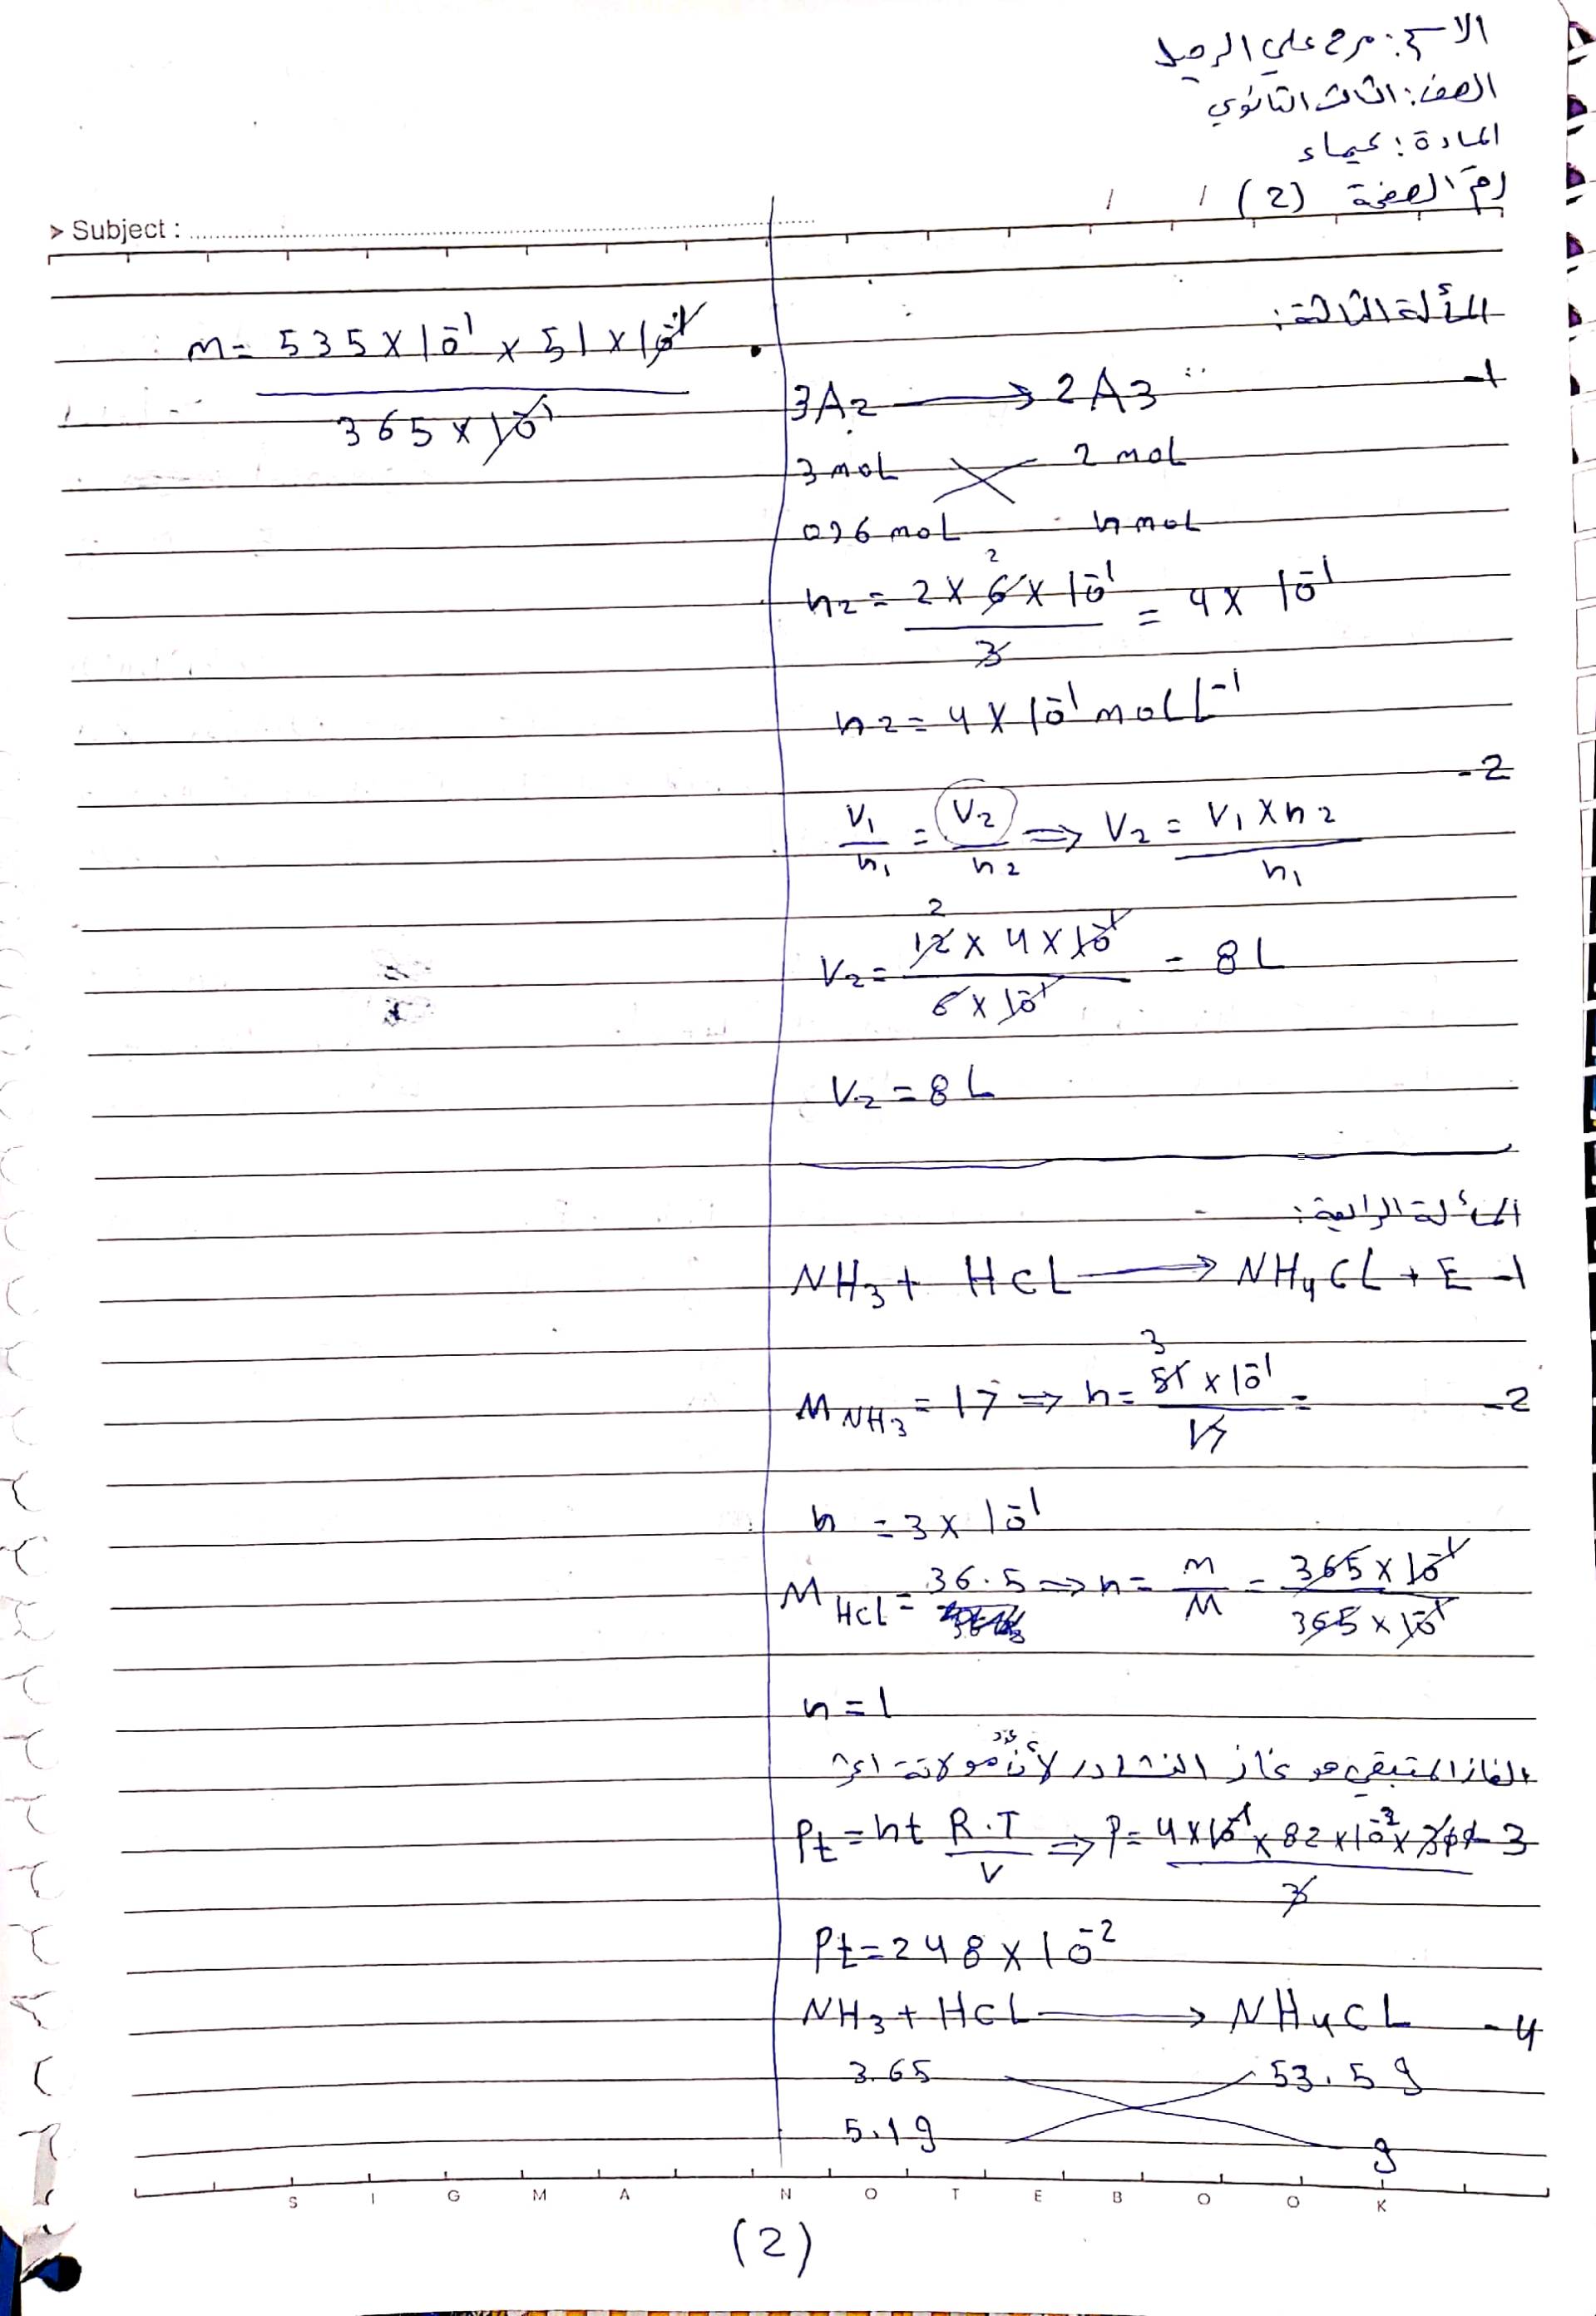 الاسم: مرح علي الرحيل
الصف: الثالث الثانوي
المادة: كيمياء
رقم الصفحة (2) / /
> Subject :
المسألة الثالثة:
3A2 ⟶ 2A3 -1
3 mol 2 mol
0,6 mol n mol
n2 = 2 × 6 × 10^-1 / 3 = 4 × 10^-1
n2 = 4 × 10^-1 mol L^-1
-2
V1/n1 = V2/n2 ⇒ V2 = V1 × n2 / n1
V2 = 12 × 4 × 10^-1 / 6 × 10^-1 = 8 L
V2 = 8 L
المسألة الرابعة:
NH3 + HCL ⟶ NH4CL + E -1
M NH3 = 17 ⇒ n = 51 × 10^-1 / 17 = -2
n = 3 × 10^-1
M HCl = 36.5 ⇒ n = m/M = 365 × 10^-1 / 365 × 10^-1
n = 1
الغاز المتبقي هو غاز النشادر لأن عدد مولاته أكثر
Pt = nt R.T / V ⇒ P = 4 × 10^-1 × 82 × 10^-3 × / 3 -3
Pt = 248 × 10^-2
NH3 + HCL ⟶ NH4CL -4
3.65 53.5 g
5.1 g g
m = 535 × 10^-1 × 51 × 10^-1 / 365 × 10^-1
SIGMA NOTEBOOK
(2)